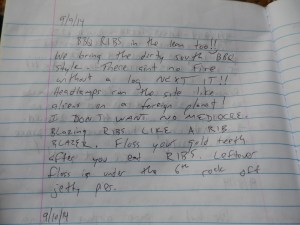 9/9/14
BBQ RIBS in the  too!!
We bring the dirty south BBQ
Style. There aint no fire
without a log NEXT IT!!
Headlamps ran the site like
aliens on a foreign planet!
I DON'T WANT NO MEDIOCRE.
Blazing RIBS LIKE A RIB
BLAZER. Floss your gold teeth
after you eat RIBS. Leftover
floss is under the 6th rock off
jetty
9/10/14